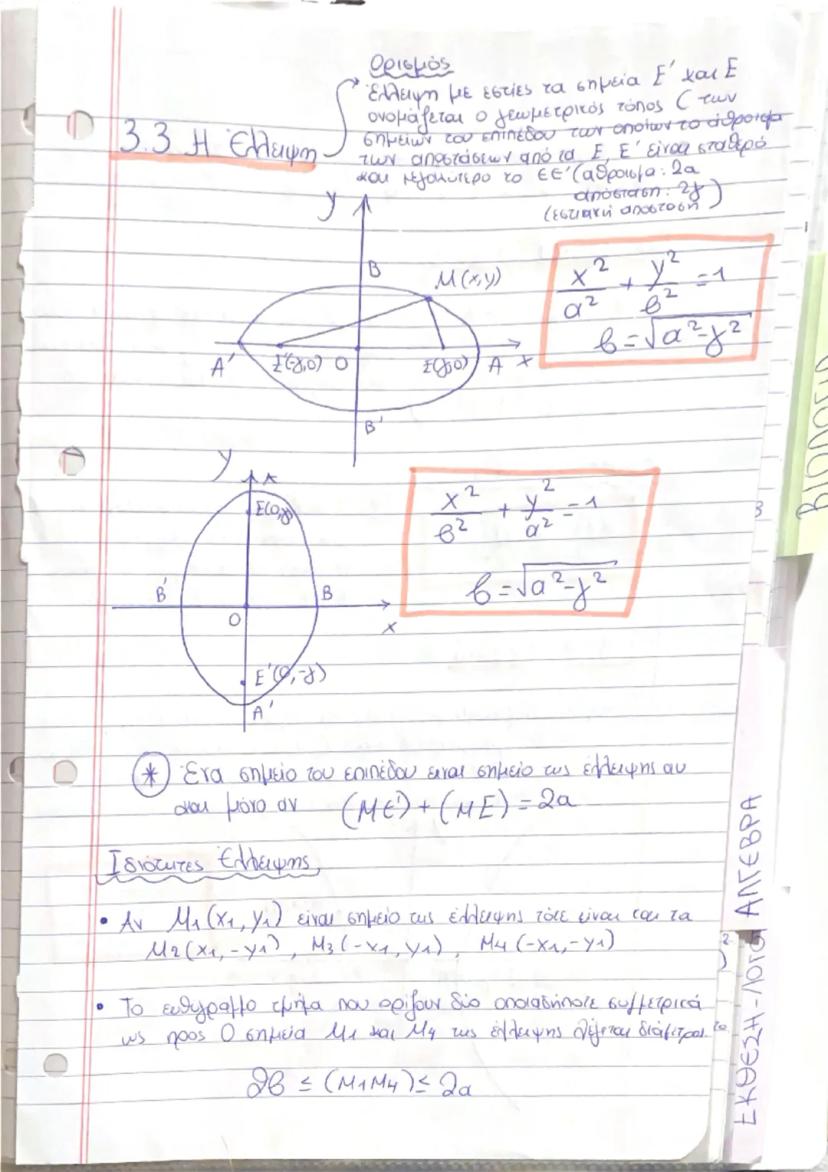 Ορισμός
3.3 Η Έλλειψη
Έλλειψη με εστίες τα σημεία Ε' και Ε
ονομάζεται ο γεωμετρικός τόπος C των
σημείων του επιπέδου των οποίων το άθροισμα
των αποστάσεων από τα Ε, Ε' είναι σταθερό
και μεγαλύτερο το ΕΕ' (άθροισμα: 2α
απόσταση: 2γ)
(εστιακή απόσταση)
y
B
M(x,y)
x²/α² + y²/β² = 1
β = √α²-γ²
A' E'(-γ,0) O E(γ,0) A x
B'
y
A
E(0,γ)
x²/β² + y²/α² = 1
β = √α²-γ²
B' B
O
x
E'(0,-γ)
A'
* Ένα σημείο του επιπέδου είναι σημείο της έλλειψης αν
και μόνο αν (ΜΕ') + (ΜΕ) = 2α
Ιδιότητες Έλλειψης
• Αν Μ1(x1, y1) είναι σημείο της έλλειψης τότε είναι και τα
Μ2(x1, -y1), Μ3(-x1, y1), Μ4(-x1, -y1)
• Το ευθύγραμμο τμήμα που ορίζουν δύο οποιαδήποτε συμμετρικά
ως προς Ο σημεία Μ1 και Μ4 της έλλειψης λέγεται διάμετρος το
2β ≤ (Μ1Μ4) ≤ 2α
ΒΙΟΛΟΓΙΑ
ΑΛΓΕΒΡΑ
ΕΚΘΕΣΗ-ΛΟΓΟΤ